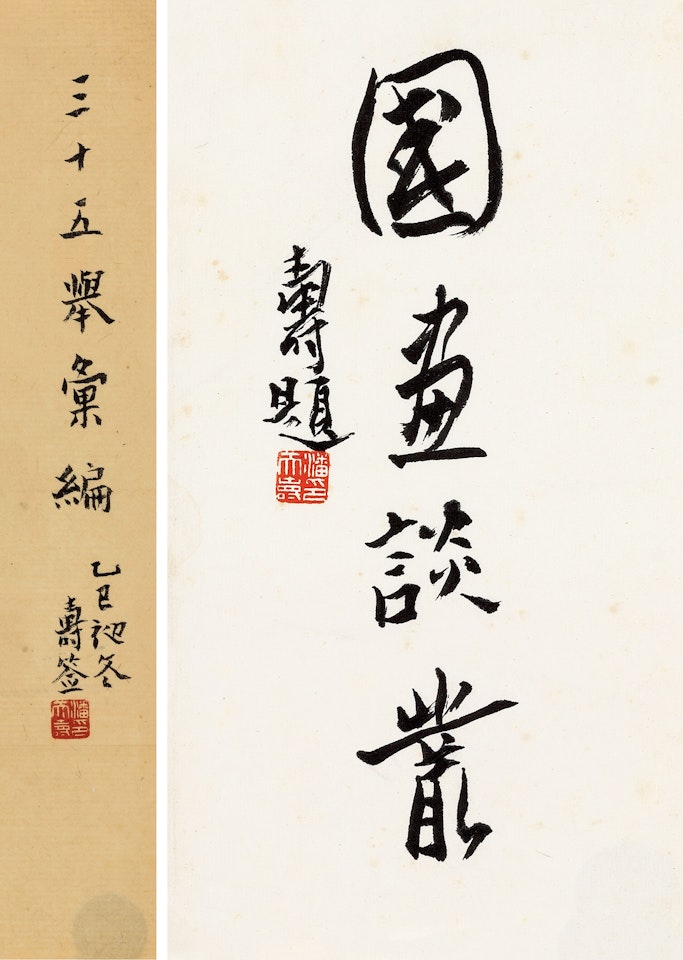 三十五舉彙編
乙巳初冬
壽签
潘印天壽
國畫談叢
壽題
潘印天壽